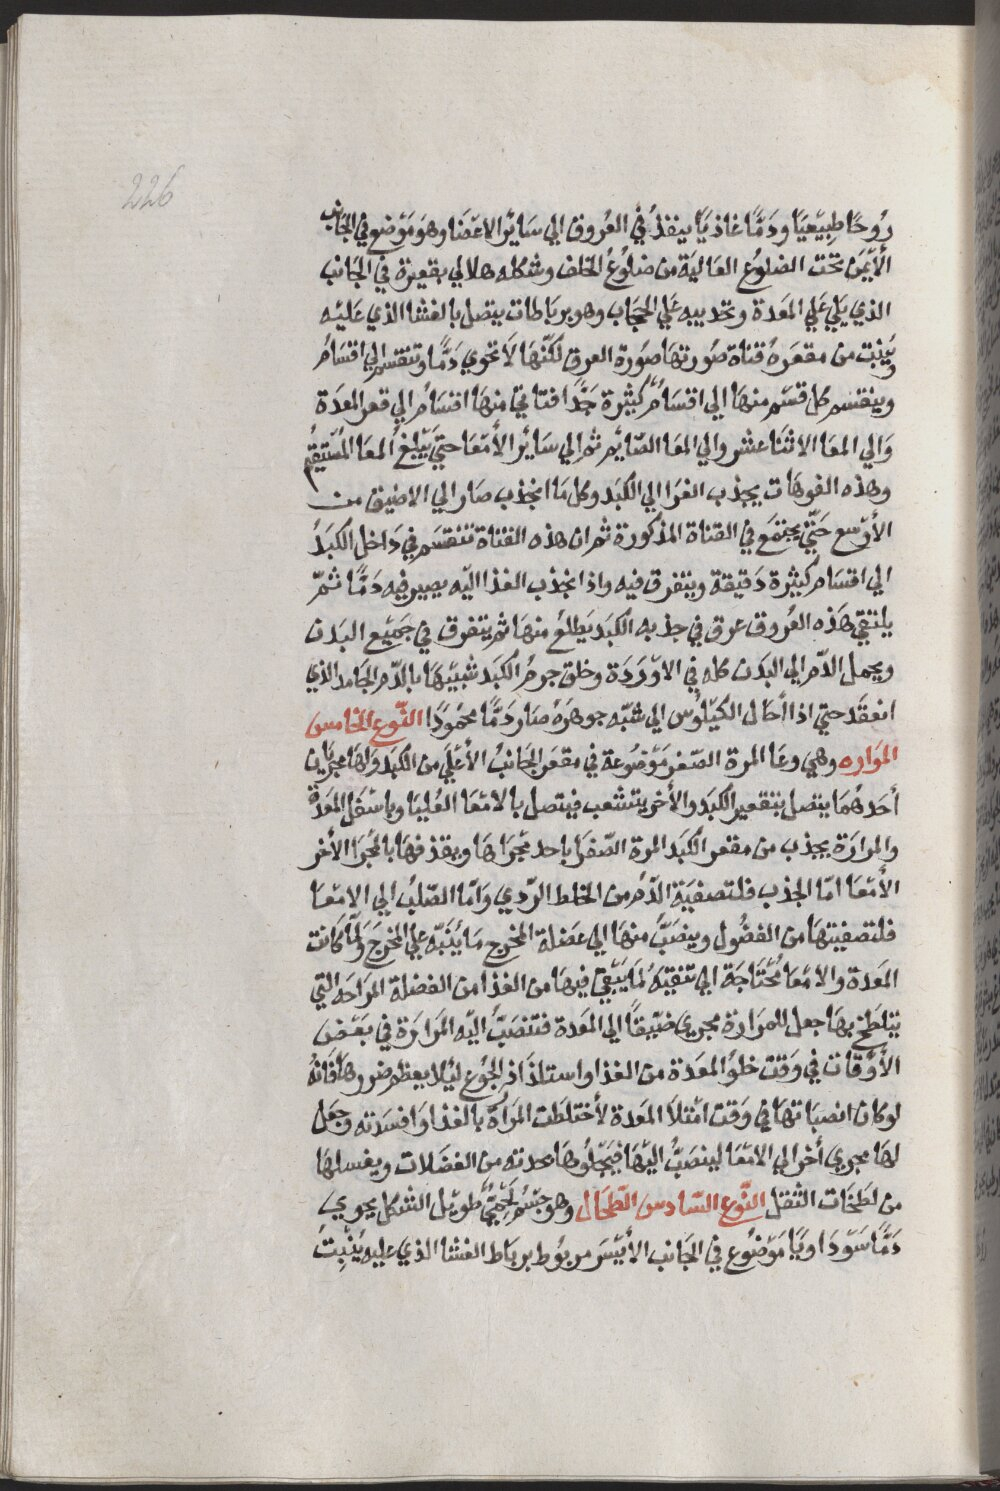 226
رُوحًا طِبِيّعيَا ودَمًّا غاذيًا ينفذُ في العُروق الي سَائر الاعْضَا وهوَ مَوْضع في الجَانب
الأيّمَن تحت الضلوُع العَاليَة من ضلوُع الخلف وشكله هلالي بقعيرة في الجَانب
الذي يَلي عَلي المعَدة وتحدبيه عَلي الحجَاب وهو برباطات يتصل بالغشا الذي عَليْه
ويَنْبت من مقعَره قناة صُورتهَا صُورة العرق لكنّهَا لا تحوي دَمًا وتنقسم الي اقسَام
وينقسم كل قسْم منهَا الي اقسَام كثيرة جَدًّا فتاتي منهَا اقسَام الي قعر المعَدة
وَالي المعَا الاثنَا عشر والي المعَا الصّائم ثم الي سَائر الأمْعَا حتي يَبْلغ المعَا المُسْتقيم
وهذه الفوهَات يجذب الغزا الي الكبَد وكل مَا انجذب صَار الي الاضيق من
الأوْسع حَتّي يجتمَع في القناة المذكورة ثم ان هذه القناة تنقسَم في دَاخل الكبَدُ
الي اقسَام كثيرة دَقيقة ويتفرق فيه واذ انجذب الغذا اليْه يصير فيه دَمًا ثمّ
يلتقي هَذه العُروق عرق في جذبه الكبَد يَطلعُ منهَا ثم يتفرق في جَميْع البدَن
ويحمل الدّم الي البدَن كله في الاوْردَة وخلق جرمُ الكبَد شبيْهَا بالدّم الجَامد الذي
انعقَد حتي اذا أحَال الكيْلوُس الي شبّه جوهَرَهُ صَار دَمًّا محمُودًا النّوع الخَامس
المَراره وهيَ وعَا المرة الصّفر مَوْضوُعة في مقعَر الجَانبُ الأعْلَي من الكبَد وَلهَا مجرَيَان
أحَدهُمَا يتصل بتقعير الكبَد والأخر يتشعب فيتصل بالامْعَا العُليَا وباسْفَل المعَدَة
والمرارَة يجذب من مقعر الكبَد المرة الصّفرَا باحد مجْرَاهَا ويقذفهَا بالمجْرَا الأخر
الأمْعَا امّا الجذب فلتصفيَة الدّم من الخلط الرّدي وَامّا الصّلبُ الي الامْعَا
فلتصفيتهَا من الفضُول وينصَبّ منهَا الي عَضلة المخرج مَا يُنَبّه عَلي المخرَج وَلمّا كَانت
المَعدة والامْعَا مُحْتَاجَة الي تنقيَة لمَا يَبْقي فيهَا من الغذا من الفضلة المرَاحَه التي
يتلطّخ بهَا جعل للمرَارة مجري ضيّقًا الي المعَدة فتنصَبّ اليْه المَرارَة في بعْض
الأوْقات في وَقت خلوُ المعَدة من الغذا واستلذَاذ الجُوع ليْلا يعظم ضررهَا فَانهُ
لوكان انصبَاتهَا في وَقت امْتلا المعَدة لأختلطَت المَرارَة بالغذا وَافسَدته وجعَل
لهَا مجري أخر الي الامْعَا لينصَبّ اليْهَا فيَجْلوُهَا محدته من الفضَلات ويغسلهَا
من لطخَات الثفل النّوع السّادس الطّحَال وهو جسْم لحْميّ طويْل الشكل يحوي
دَمًا سَوْدَاويًا مَوْضوُع في الجَانب الأيْسَر مربوُط برباط الغشا الذي عليه يُنْبتُ